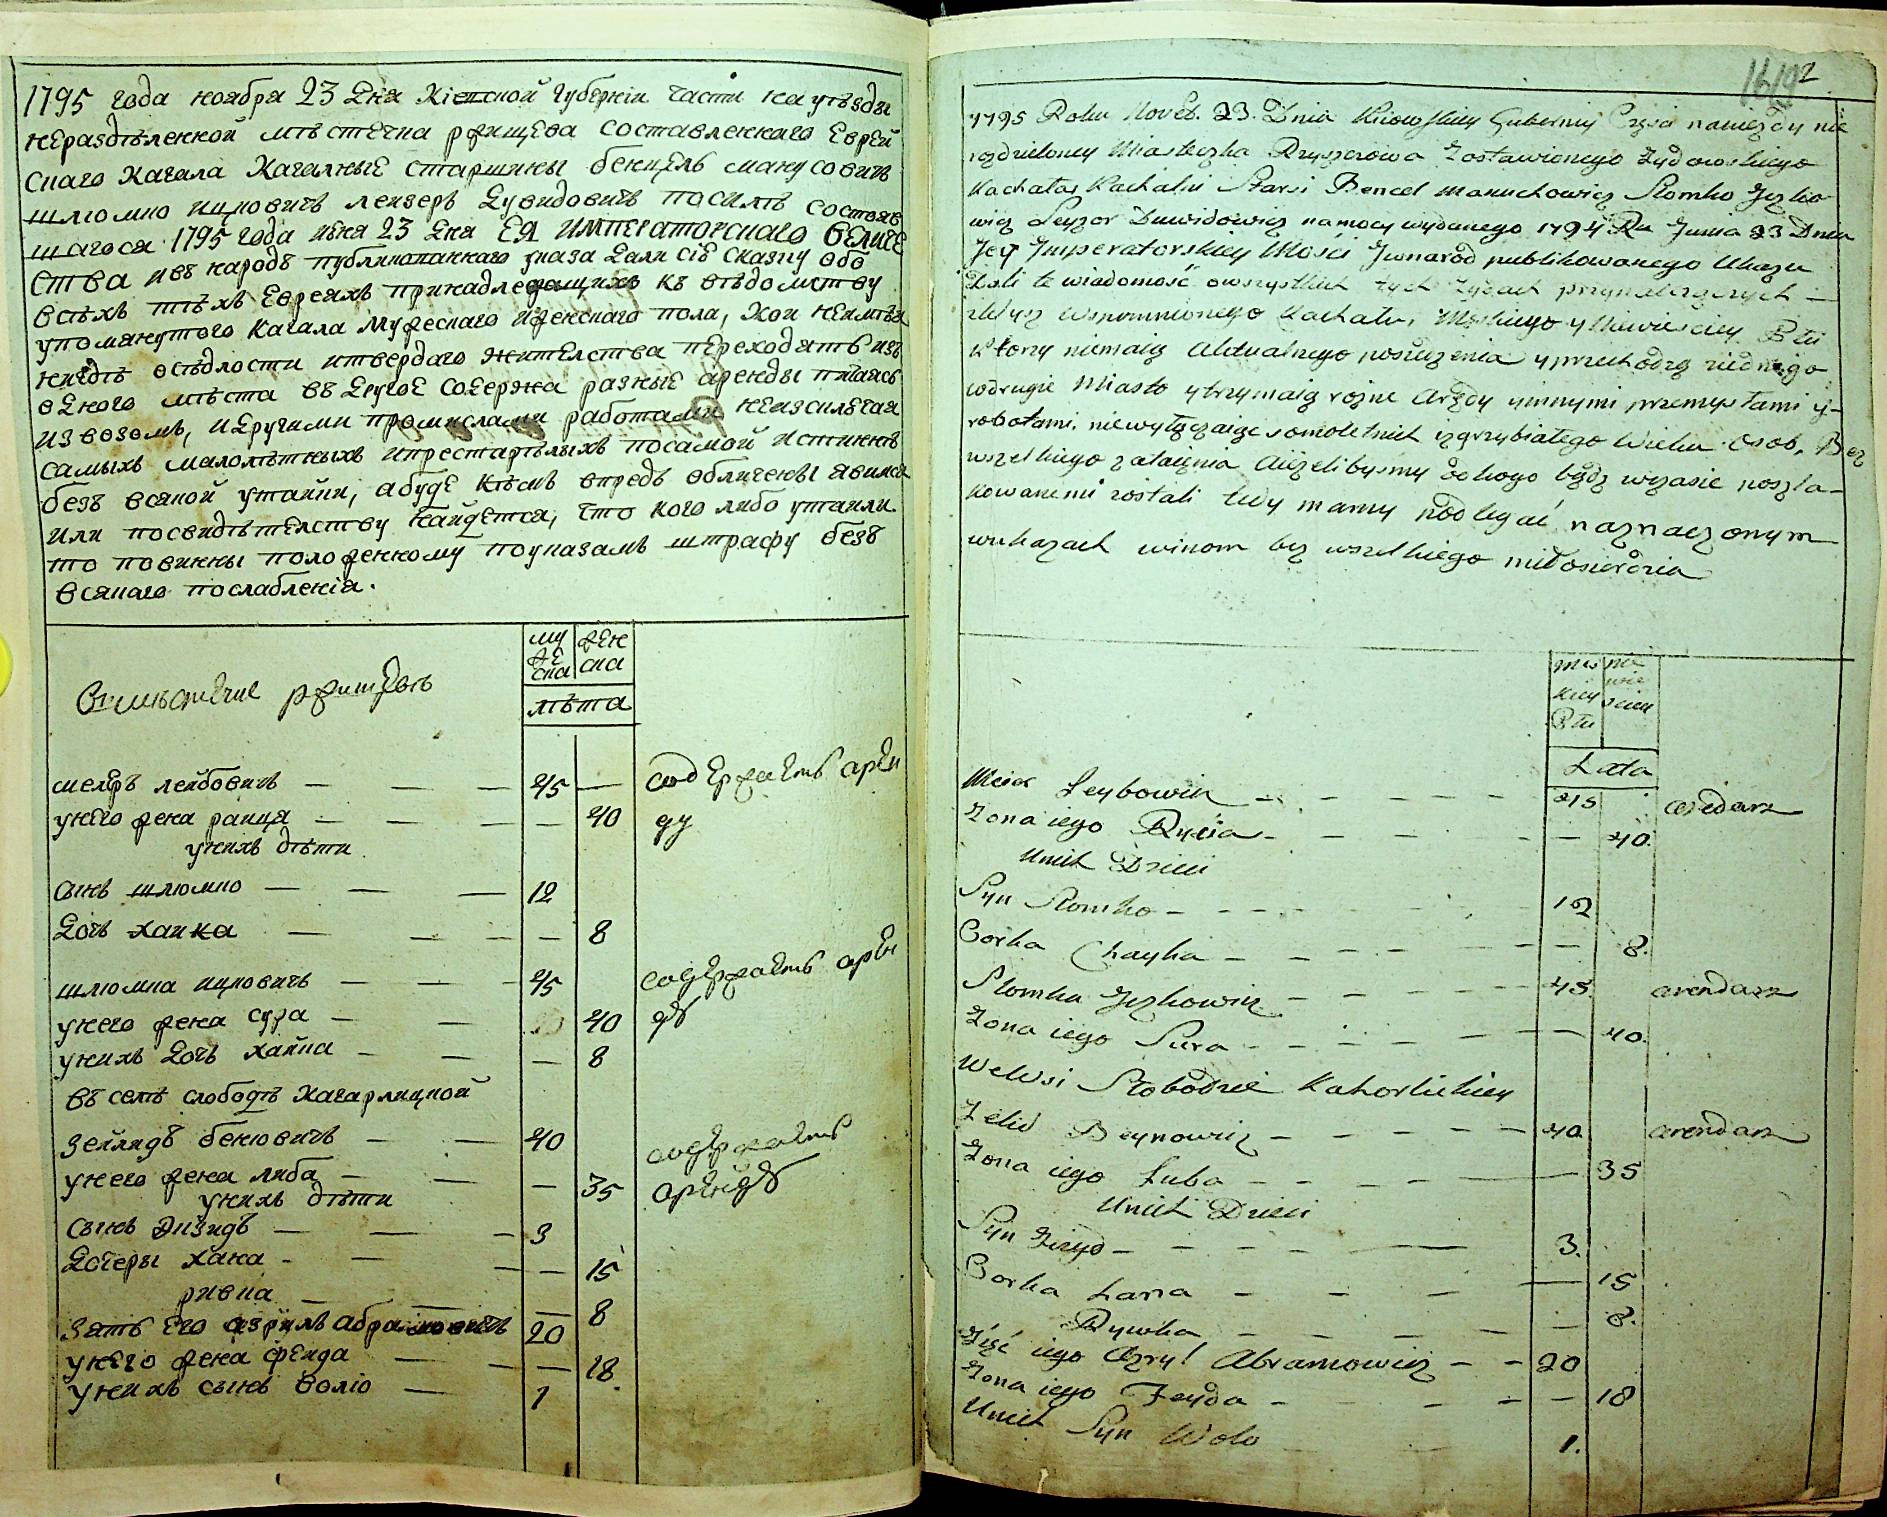 1795 года ноября 23 дня Кіевской Губерніи части на уѣзды
нераздѣленной мѣстечка ржищева составленнаго Еврей
скаго Кагала Кагалные старшины бенцель манусовичъ
шлюомко ицковичъ леизеръ дувидовичъ посилѣ состояв
шагося 1795 года июня 23 дня ЕЯ ИМПЕРАТОРСКАГО ВЕЛИЧЕ
СТВА ивъ народъ публикованнаго указа дали сіе сказку обо
всѣхъ тѣхъ Евреяхъ принадлежащихъ къ вѣдомству
упомянутого кагала мужескаго иженскаго пола, кои неимѣя
нигдѣ осѣдлости итвердаго жителства переходятъ изъ
одного мѣста въ другое содержа разные аренды питаясь
извозомъ, идругими промислами работами неизсилѣчая
самыхъ малолѣтныхъ ипрестарѣлыхъ посамой истиннѣ
безъ всякой утайки, абуде кѣмъ впредъ обличены явимся
или посвидѣтелству найдется, что кого либо утаили
то повинны положенному поуказамъ штрафу безъ
всякаго послабленія.
му же ска
жен ска
лѣта
Вмѣстечке ржищевѣ
меиръ лейбовичъ — — — 45 — содержаетъ арен
унего жена раица — — — — 40 ду
унихъ дѣти
сынъ шлюмко — — — 12
дочь хаика — — — — 8
шлюмка ицковичъ — — — 45 содержаетъ арен
унего жена сура — — 40 дѣ
унихъ дочь хайка — — — 8
въ селѣ слободѣ кагарлицкой
зейлидъ бенювичъ — — 40 содержаетъ
унего жена либа — — — 35 арендѣ
унихъ дѣти
сынъ дизидъ — — — 3
дочеры хана — — — — 15
ривка — — — 8
зять его азрилъ абрамовичъ 20
унего жена фейда — — — 18.
унихъ сынъ волю — 1
1795 Roku Noveb. 23. Dnia Kiiowskiey Gubernij Częsci nauiezdy nie
rozdzieloney Miasteczka Rzyszczowa Zostawionego Żydowskiego
Kachału, Kachalni Starsi Bencel Manuchowicz Szlomko Jczko
wicz Leyzor Duwidowicz namocy wydanego 1794 Ru Junia 23 Dnia
Jey Jmperatorskiey Mosci Jwnarod publikowanego Ukazu
Dali te wiadomość owszystkich tych żydach przynależączych —
wspomnionego Kachału, Męskiego y Niewiesciey Płci
którzy niemaią Aktualnego posiedzenia yprzechodzą ziednego
wdrugie Miasto ytrzymaią rożne Arędy yinnymi przemysłami y
robotami, niewyłączaiąc samoletnich izgrzybiałego Wieku Osob, Bez
wszelkiego zataienia Aiżelibysmy dokogo bądz wczasie poszla-
kowanemi zostali tedy mamy podlegać naznaczonym
wukazach winom bez wszelkiego miłosierdzia
mes kiey Płci
nie wie sciey
Lata
Meior Leybowicz — — — — 45 arędarz
Zona iego Rycia — — — — — 40.
Unich Dzieci
Syn Szlomko — — — — 12
Corka Chayka — — — — — 8.
Szlomka Jczkowicz — — — — 45. arendarz
Zona iego Sura — — — — — 40.
Wewsi Słobodzie Kahorlickiey
Zelid Beynowicz — — — — 40 arendarz
Zona iego Luba — — — — — 35
Unich Dzieci
Syn Zizyd — — — — 3.
Corka Hana — — — — 15
Rywka — — — — 8.
Zięć iego Azryl Abramowicz — — 20
Zona iego Feyda — — — — 18
Unich Syn Wolo — — 1.